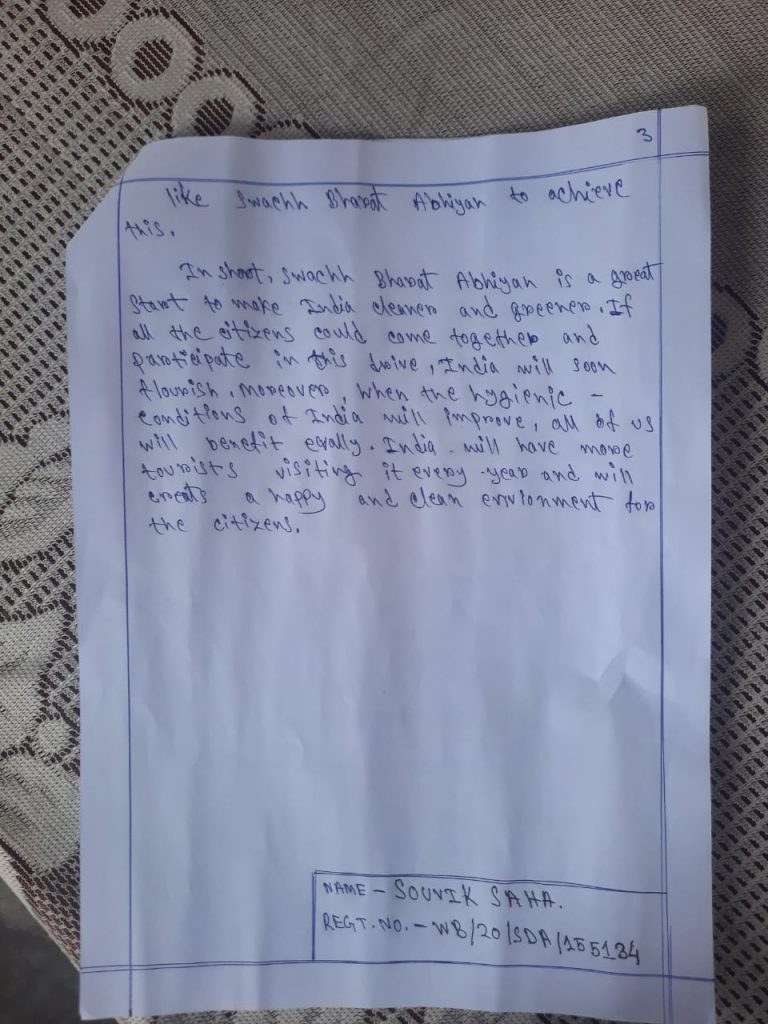 3
like Swachh Bharat Abhiyan to achieve
this.
In short, Swachh Bharat Abhiyan is a great
start to make India cleaner and greener. If
all the citizens could come together and
participate in this drive, India will soon
flourish. Moreover, when the hygienic -
conditions of India will improve, all of us
will benefit eqally. India will have more
tourists visiting it every year and will
creats a happy and clean envionment for
the citizens.
NAME - SOUVIK SAHA.
REGT. NO. - WB/20/SDA/155134